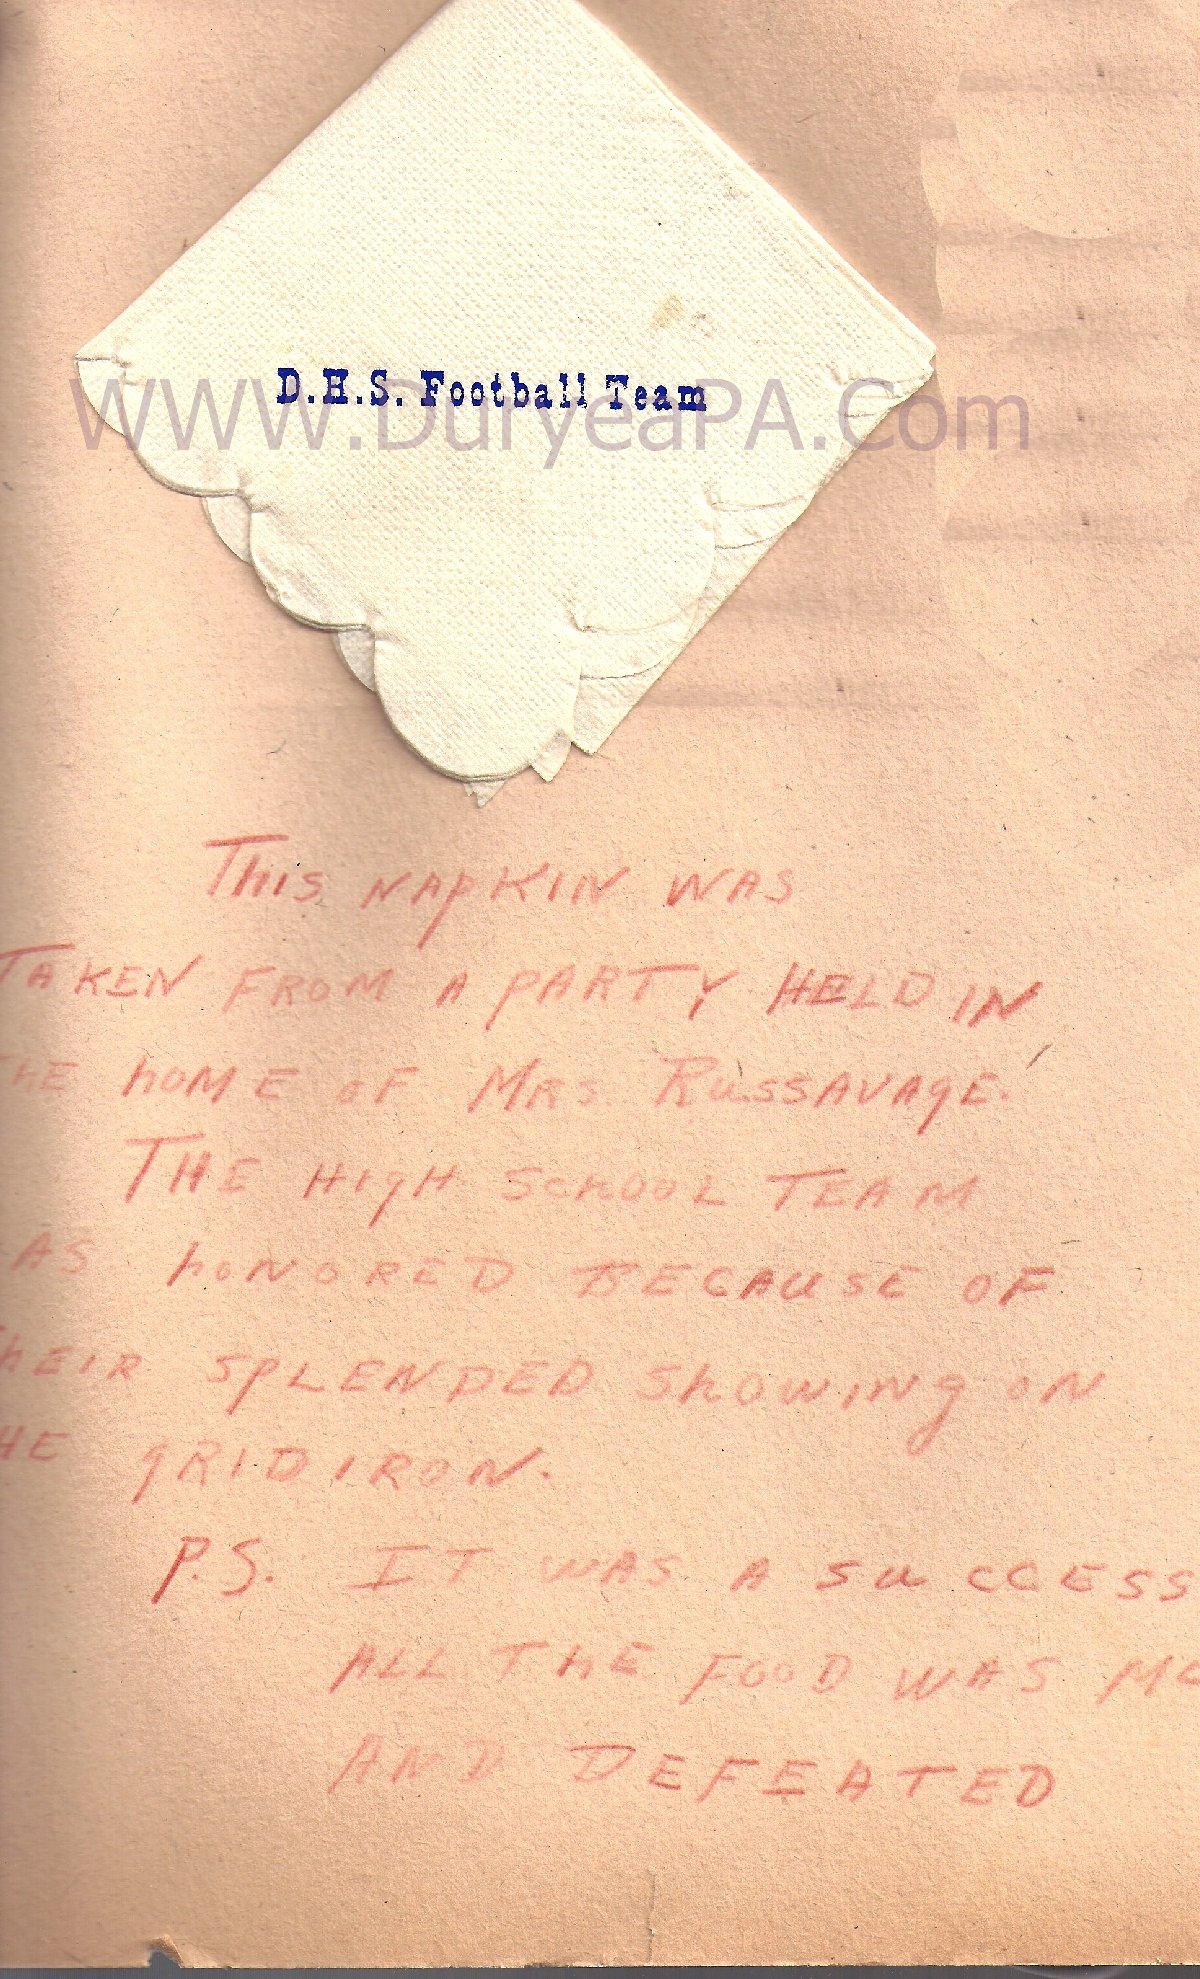 D.H.S. Football Team
WWW.DuryeaPA.Com
This napkin was
Taken from a party held in
home of Mrs. Russavage.
The high school team
honored because of
their splended showing on
gridiron.
P.S. It was a success
All the food was
And defeated